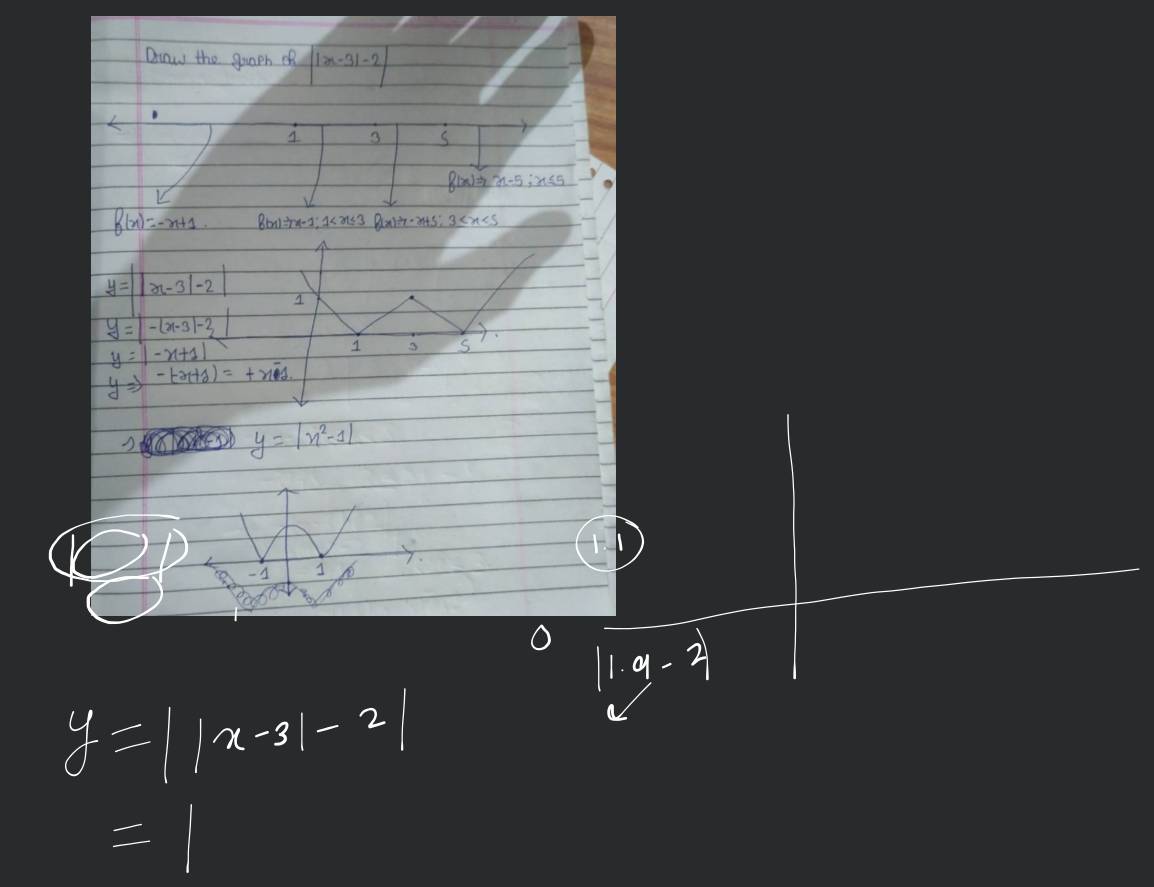 Draw the graph of ||x-3|-2|
1 3 5
f(x) ⇒ x-5 ; x≤5
f(x) = -x+1. f(x) ⇒ x-1 ; 1<x≤3 f(x) ⇒ -x+5 ; 3<x<5
y = ||x-3|-2|
1
y = |-(x-3)-2|
1 3 5
y = |-x+1|
y ⇒ -(-x+1) = +x-1.
y = |x²-1|
-1 1
1.1
0
|1.9-2|
y = ||x-3|-2|
= |